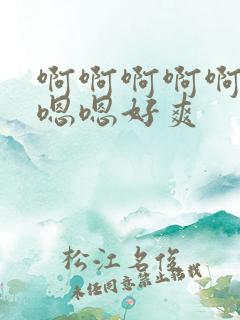 啊啊啊啊啊
嗯嗯好爽
松江名俊
未经同意禁止转载